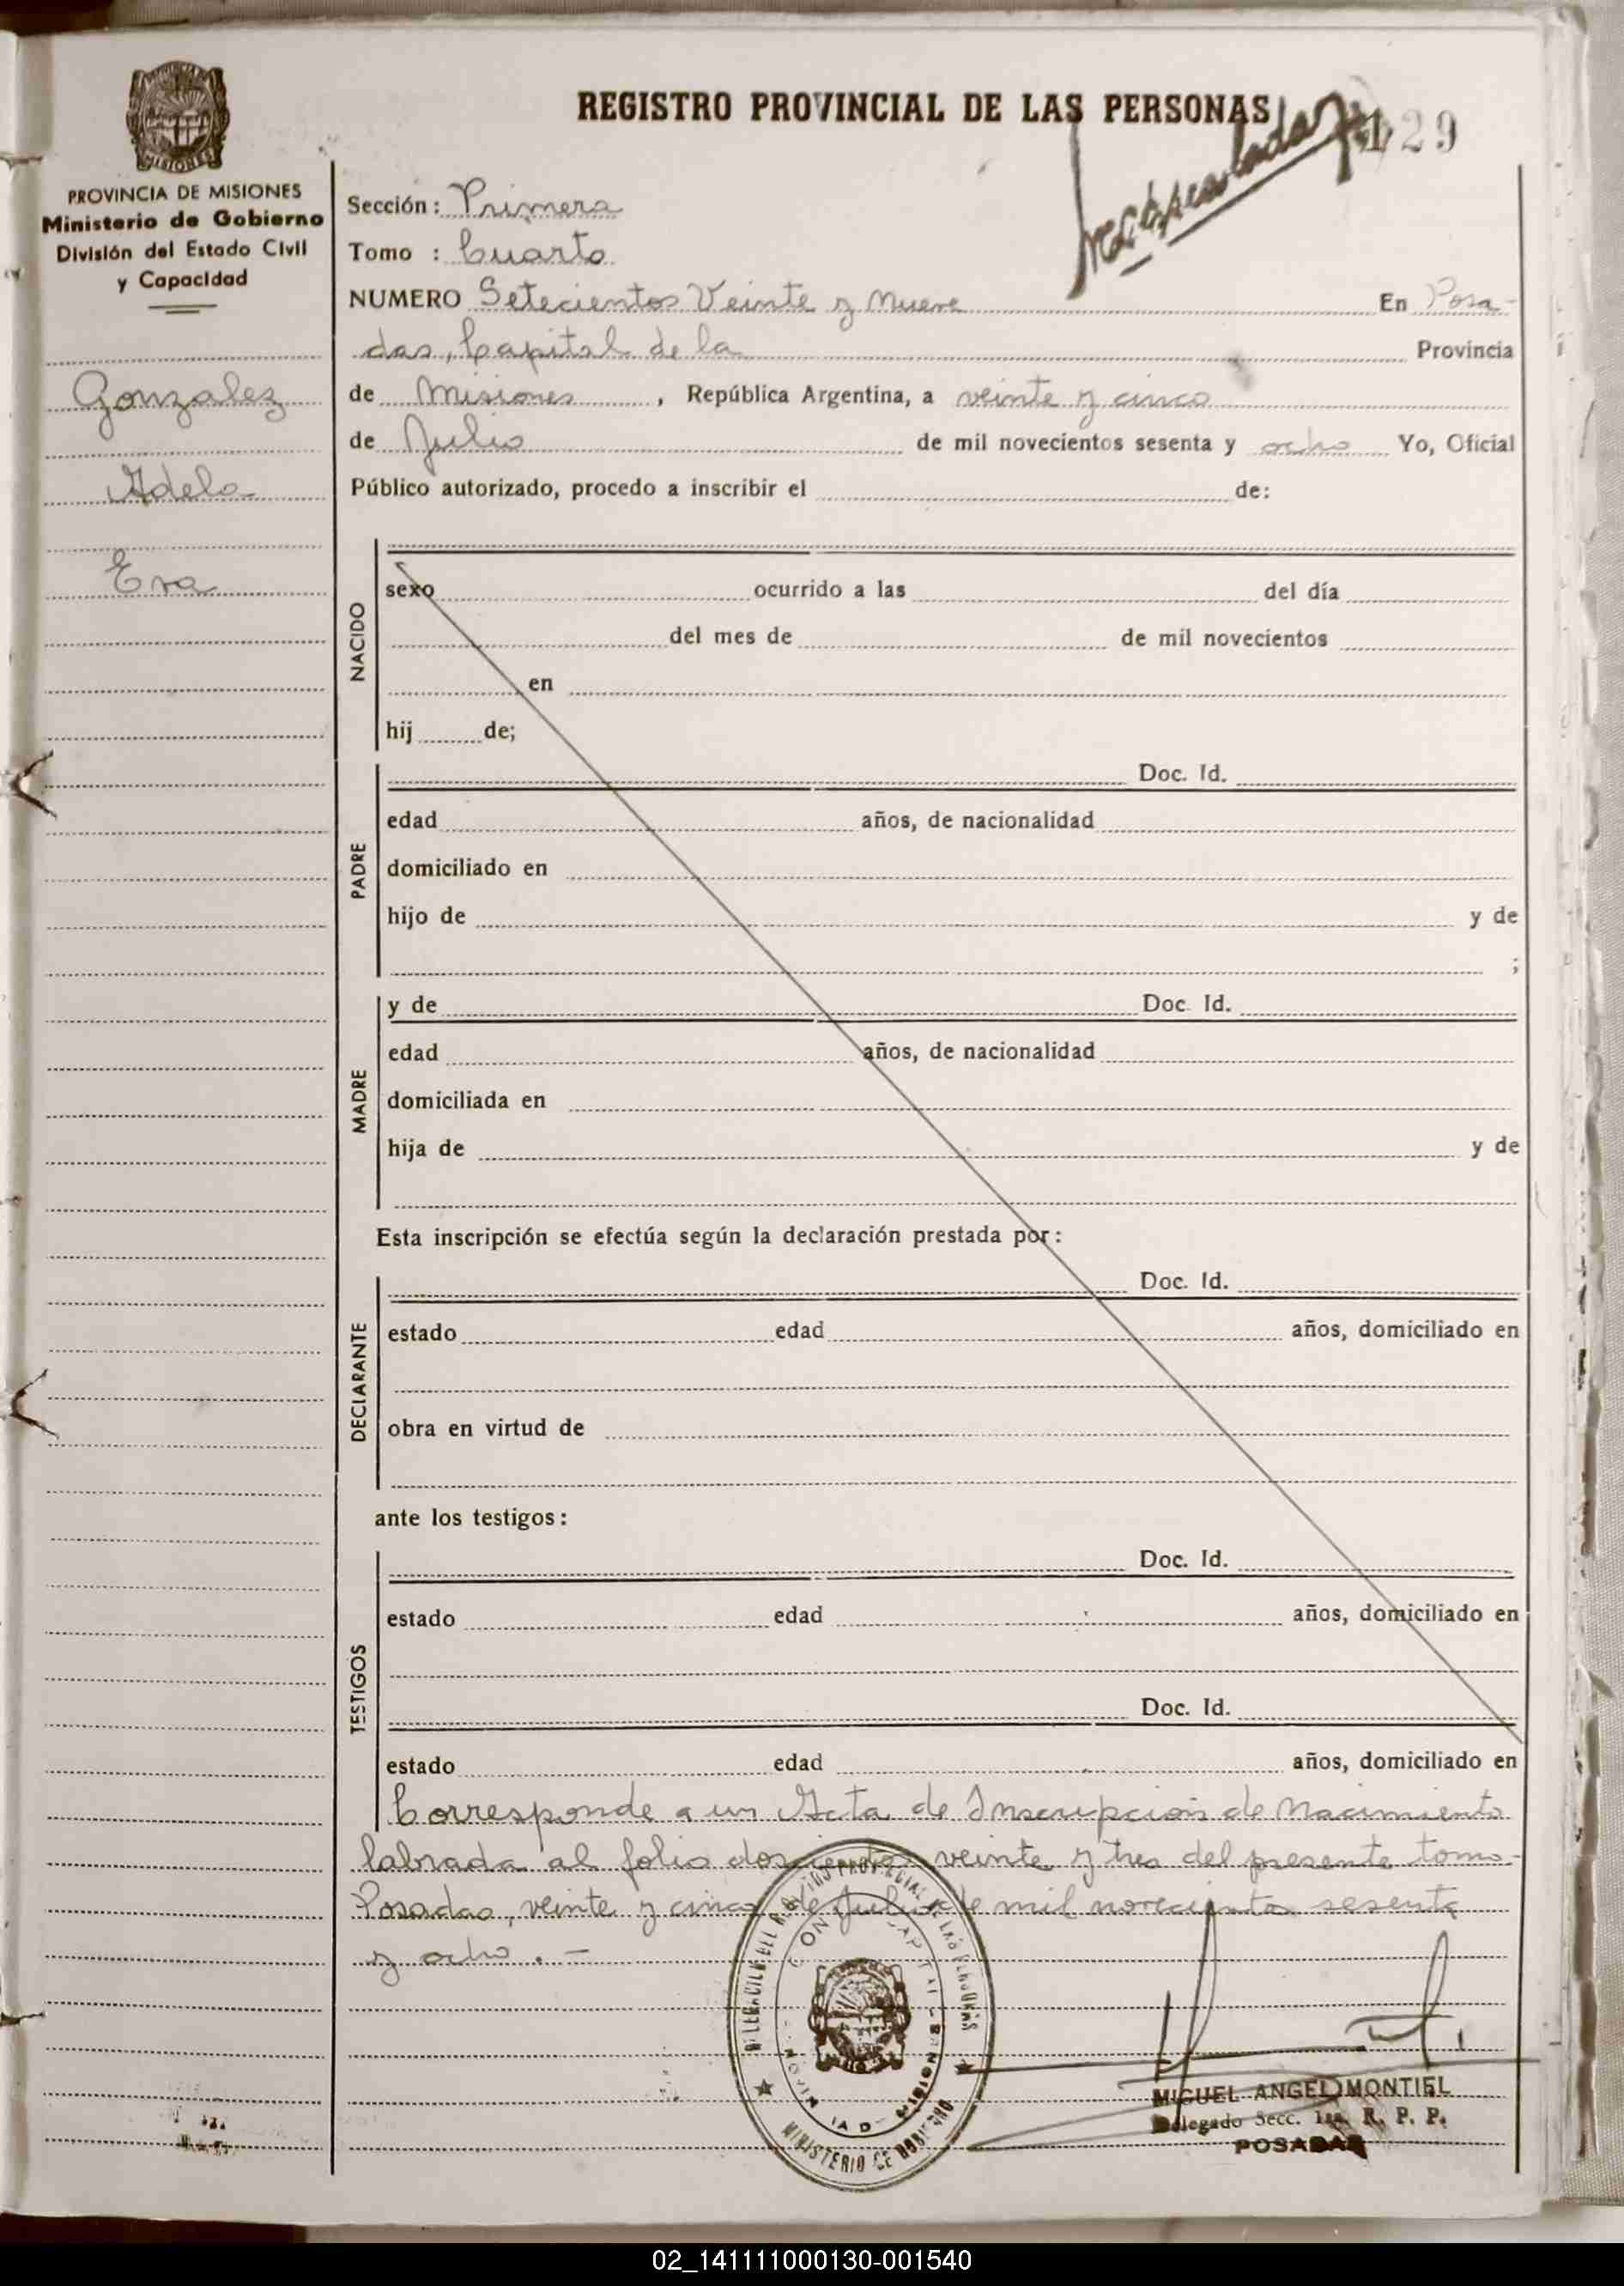 REGISTRO PROVINCIAL DE LAS PERSONAS
129
MISIONES
PROVINCIA DE MISIONES
Ministerio de Gobierno
División del Estado Civil
y Capacidad
Gonzalez
Adela
Eva
Sección: Primera
Tomo : Cuarto
NUMERO Setecientos Veinte y Nueve En Posa-
das, Capital de la Provincia
de Misiones, República Argentina, a veinte y cinco
de Julio de mil novecientos sesenta y ocho Yo, Oficial
Público autorizado, procedo a inscribir el de:
NACIDO
sexo ocurrido a las del día
del mes de de mil novecientos
en
hij de;
PADRE
Doc. Id.
edad años, de nacionalidad
domiciliado en
hijo de y de
;
MADRE
y de Doc. Id.
edad años, de nacionalidad
domiciliada en
hija de y de
Esta inscripción se efectúa según la declaración prestada por:
DECLARANTE
Doc. Id.
estado edad años, domiciliado en
obra en virtud de
ante los testigos:
TESTIGOS
Doc. Id.
estado edad años, domiciliado en
Doc. Id.
estado edad años, domiciliado en
Corresponde a un Acta de Inscripción de Nacimiento
labrada al folio doscientos veinte y tres del presente tomo.-
Posadas, veinte y cinco de Julio de mil novecientos sesenta
y ocho.-
MINISTERIO DE GOBIERNO
MIGUEL ANGEL MONTIEL
Delegado Secc. 1ra. R. P. P.
POSADAS
02_141111000130-001540